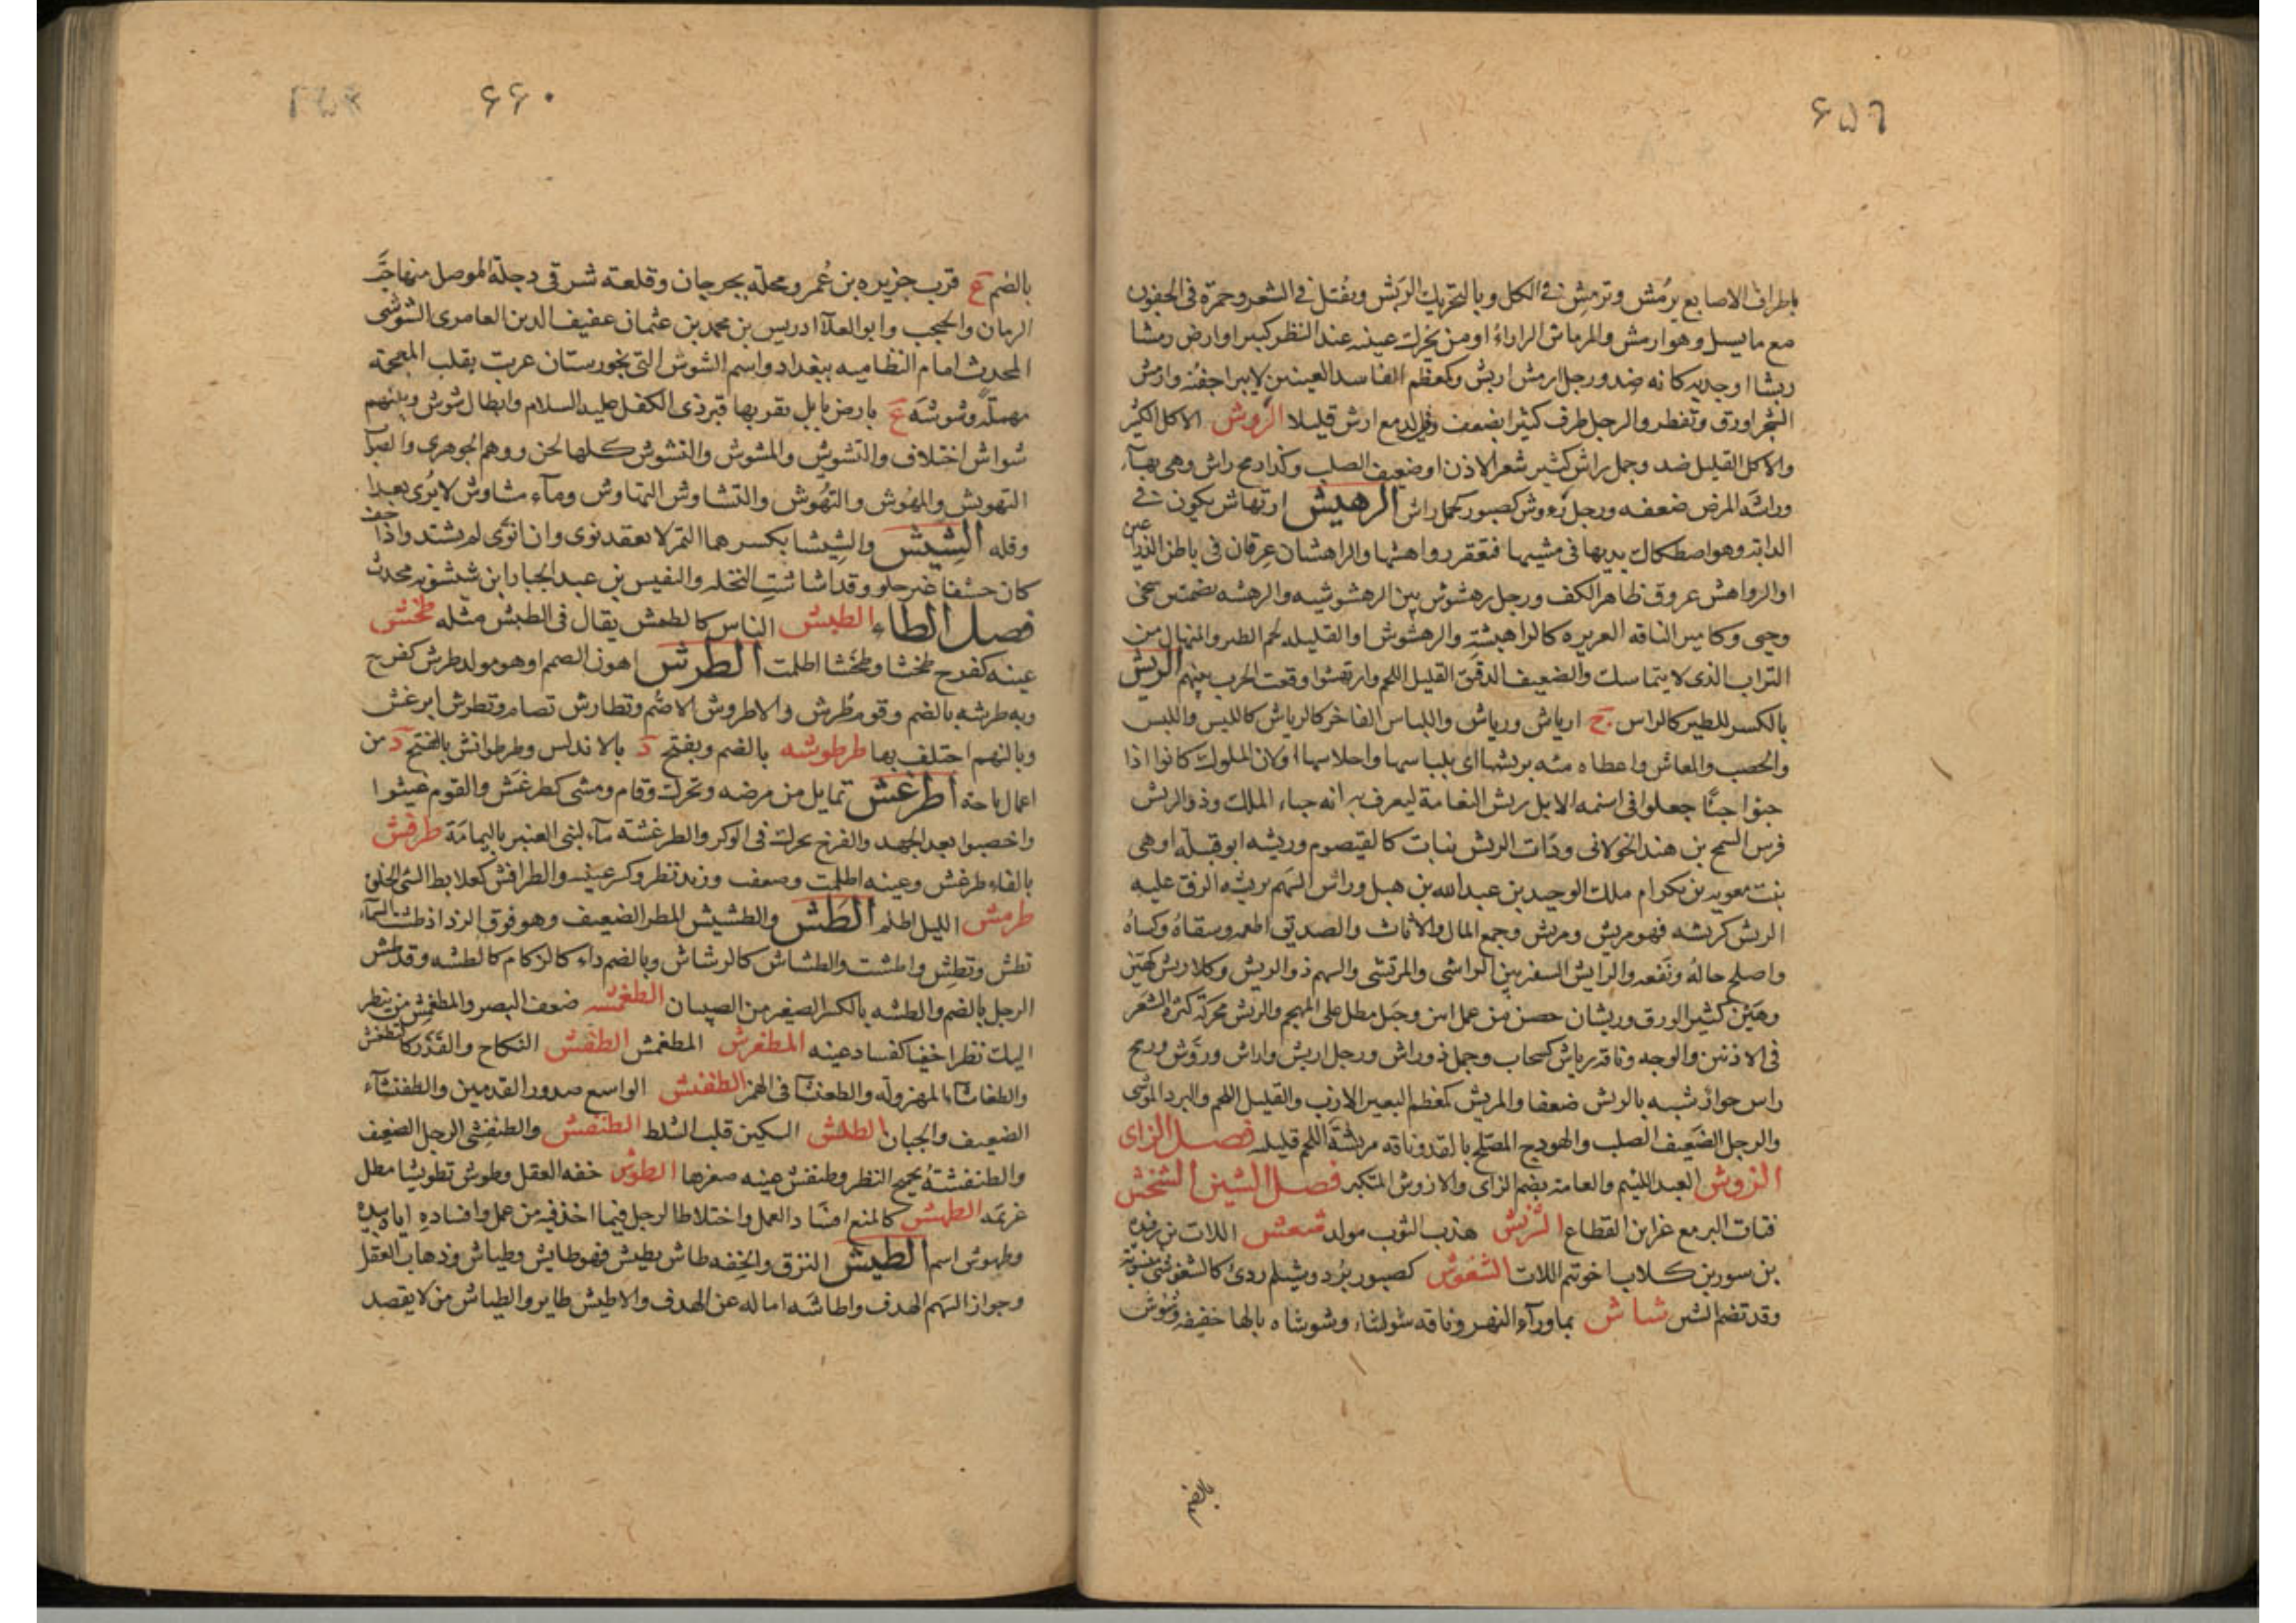 ۶۵۹
باطراف الاصابع يرُمش وترمِش فى الكل وبالتحريك الربَش وتفتل فى الشعر وحمرة فى الجفون
مع ما يسيل وهو ارمش والمرماش الراراء او من يحرك عينه عند النظر كبيرا وارض رمشا
ربشا او جدبه كانه ضد ورجل ارمش اربش وكمعظم الفاسد العينين لا يبرا جفنه وارمش
الشجر اورق وتفطر والرجل طرف كثيرا بضعف وفى الدمع ارش قليلا الروش الاكل الكثير
والاكل القليل ضد وجمل راش كثير شعر الاذن او ضعيف الصلب وكذا رمح راش وهى بهاء
وراشه المرض ضعفه ورجل رءوش كصبور كجمل راش الرهيش ارتهاش يكون فى
الدابة وهو اصطكاك يديها فى مشيها فتعقر رواهشها والراهشان عرقان فى باطن الذراعين
او الرواهش عروق ظاهر الكف ورجل رهشوش بين الرهشوشيه والرهشه بضمتين سخى
وحيى وكامير الناقه الغزيره كالراهيشة والرهشوش او القليله لحم الظهر والمنهال من
التراب الذى لا يتماسك والضعيف الدقيق القليل اللحم وارتهشوا وقعت الحرب بينهم الريش
بالكسر للطير كالراس ج ارياش ورياش واللباس الفاخر كالرياش كاللبس واللباس
والخصب والمعاش واعطاه مئه بريشها اى بلباسها واحلاسها او لان الملوك كانوا اذا
حبوا حباً جعلوا فى اسنمه الابل ريش النعامة ليعرف به انه حباء الملك وذو الريش
فرس السمح بن هند الخولانى وذات الريش نبات كالقيصوم وريشه ابو قبيلة او هى
بنت معويه بن بكر ام ملك الوحيد بن عبد الله بن هبل وراش السهم يريشه الزق عليه
الريش كريشه فهو مريش ومريش وجمع المال والاثاث والصديق اطعمه وسقاهُ وكساهُ
واصلح حالهُ ونَفعه والرايش السفير بين الراشى والمرتشى والسهم ذو الريش وكلا ريش كهين
وهيّن كثير الورق وريشان حصن من عمل ابين وجبل مطل على المهجم والريش محركة كثرة الشعر
فى الاذنين والوجه وناقة رياش كسحاب وجمل ذو راش ورجل اريش واراش وروش ورمح
راس خوار شبه بالريش ضعفا والمريش كمعظم البعير الازب والقليل اللحم والبرد الموشى
والرجل الضعيف الصلب والهودج المصلح بالقد وناقه مريشة اللحم قليله فصل الزاى
الزوش العبد اللئيم والعامة يضم الزاى والازوش المتكبر فصل الشين الشخش
فتات البرمع عن ابن القطاع الشربش هذب الثوب مولد شعش اللات بن رفيده
بن سور بن كلاب اخو تيم اللات الشغوش كصبور بُرد وشيلم ردئ كالشغوشى منسوبة
وقد تضم الشين شاش بما ورآء النهر وناقه شوشاء وشوشاه بالها خفيفه وشوش
بالضم
۶۶۰
بالضم ع قرب جزيره بن عُمر ومحلة بجرجان وقلعة شرقى دجلة الموصل منها حَبّ
الرمان والحبجب وابو العلآ ادريس بن محمد بن عثمان عفيف الدين العامرى الشوشى
المحدث امام النظاميه ببغداد واسم الشوش التى بخورستان عربت بقلب المعجمة
مهملة وشوشه ع بارض بابل بقربها قبر ذى الكفل عليه السلام وابطال شوش وبينهم
شواش اختلاف والتشويش والمشوش والتشوش كلها لحن ووهم الجوهرى والصواب
التهويش والمهُوش والتهُوش والتشاوش التهاوش ومآء مشاوش لا يُرى بعدا
وقله الشيش والشيشا بكسرهما التمر لا يعقد نوى وان انوى لم يشتد واذا جف
كان حشفا غير حلو وقد اشاشت النخله والنفيس بن عبد الجبار ابن شيشويه محدث
فصل الطاء الطبش الناس كالطمش يقال فى الطبش مثله طخش
عينه كفرح طخشا وطخَشا اظلمت الطرش اهون الصمم او هو مولد طرش كفرح
وبه طرشه بالضم وقوم طُرش والاطروش الاصم وتطارش تصام وتطرش ابرغش
وبالنهم اختلف بها طرطوشه بالضم ويفتح د بالاندلس وطرطوانش بالفتح د من
اعمال باجة اطرغش تمايل من مرضه وتحرك وقام ومشى كطرغش والقوم غيثوا
واخصبوا بعد الجهد والفرخ تحرك فى الوكر والطرغشة مآء لبنى العنبر باليمامة طرفش
بالفاء طرغش وعينه اظلمت وضعفت وزيد نظر وكسر عينه والطرافش كعلابط السئ الخلق
طرمش الليل اظلم الطش والطشيش المطر الضعيف وهو فوق الرذاذ طشت السماء
تطش وتطش واطشت والطشاش كالرشاش وبالضم داء كالزكام كالطشه وقد طش
الرجل بالضم والطشه بالكسر الصغير من الصبيان الطغمشه ضعف البصر والمطغمش من ينظر
اليك نظرا خفيا كفساد عينه المطغرش المطغمش الطفش النكاح والقذر كالتطفش
والطفاشا المهزولة والطفنشا فى الهمز الطفنش الواسع صدور القدمين والطفنشآء
الضعيف والجبان الطلش السكين قلب الشلط الطنفش والطنفشى الرجل الضعيف
والطنفشة تحميج النظر وطنفش عينه صغرها الطوش خفه العقل وطوش تطويشا مطل
غريمه الطهش كالمنع افساد العمل واختلاط الرجل فيما اخذ فيه من عمل وافساده اياه بيده
وطهوش اسم الطيش النزق والخفه طاش يطيش فهو طايش وطياش وذهاب العقل
وجواز السهم الهدف واطاشه اماله عن الهدف والاطيش طاير والطياش من لا يقصد